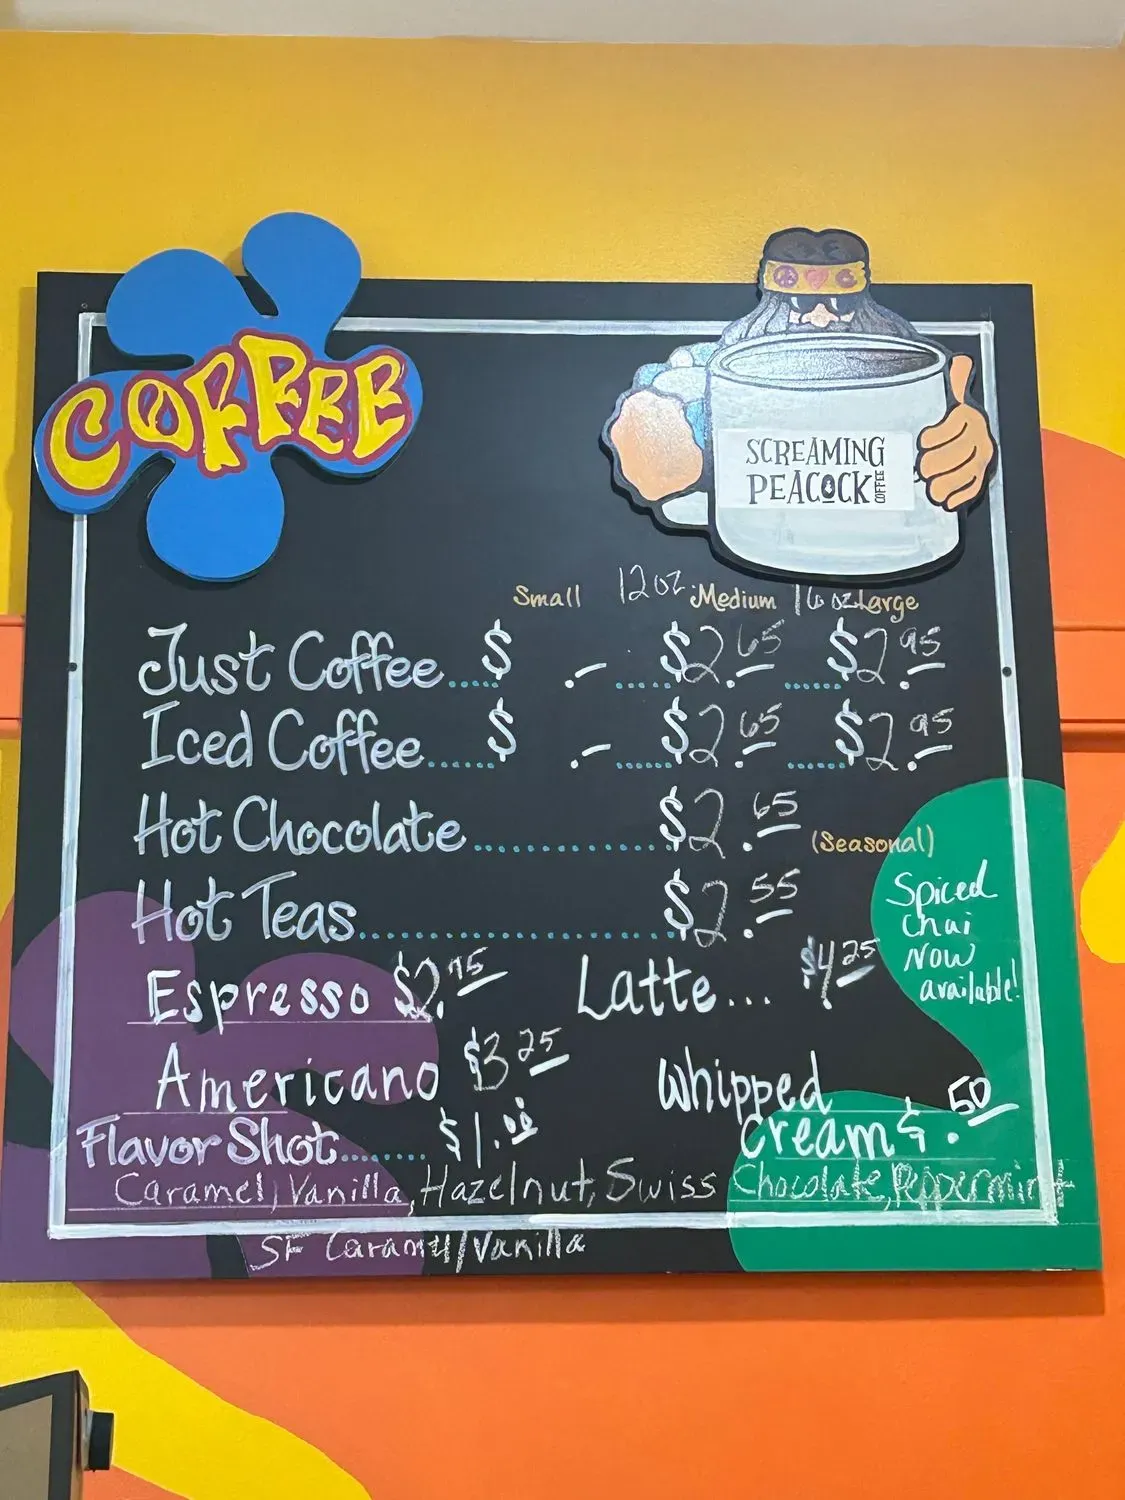 COFFEE
SCREAMING
PEACOCK
COFFEE
Small 12oz Medium 16oz Large
Just Coffee....$ .- .....$2.65 ......$2.95
Iced Coffee......$ .- ......$2.65 ......$2.95
Hot Chocolate....................$2.65 (Seasonal)
Hot Teas...............................$2.55
Spiced
Chai
Now
available!
Espresso $2.95 Latte... $4.25
Americano $3.25 Whipped
Flavor Shot........$1.00 Cream $.50
Caramel, Vanilla, Hazelnut, Swiss Chocolate, Peppermint
SF Caramel/Vanilla